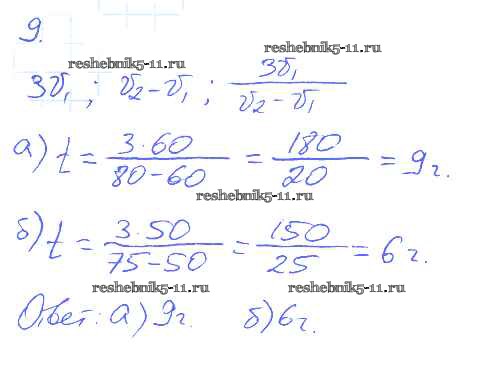 9.
reshebnik5-11.ru reshebnik5-11.ru
3v₁ ; v₂-v₁ ; 3v₁/(v₂-v₁)
а) t = 3·60/(80-60) = 180/20 = 9 г.
reshebnik5-11.ru
б) t = 3·50/(75-50) = 150/25 = 6 г.
reshebnik5-11.ru reshebnik5-11.ru
Ответ: а) 9 г. б) 6 г.